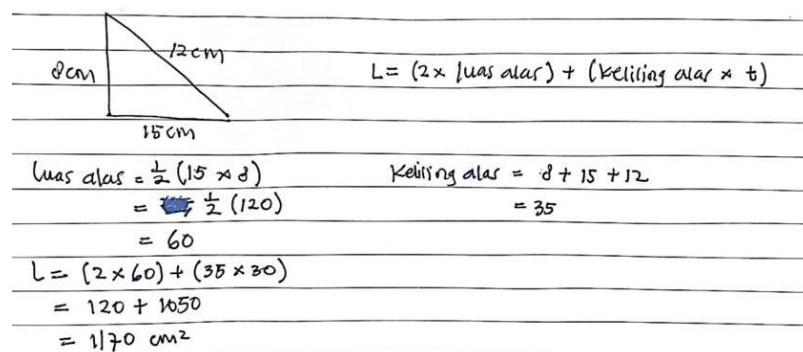 8cm
12cm
15cm
L = (2 x luas alas) + (keliling alas x t)
luas alas = 1/2 (15 x 8)
= 1/2 (120)
= 60
keliling alas = 8 + 15 + 12
= 35
L = (2 x 60) + (35 x 30)
= 120 + 1050
= 1170 cm²